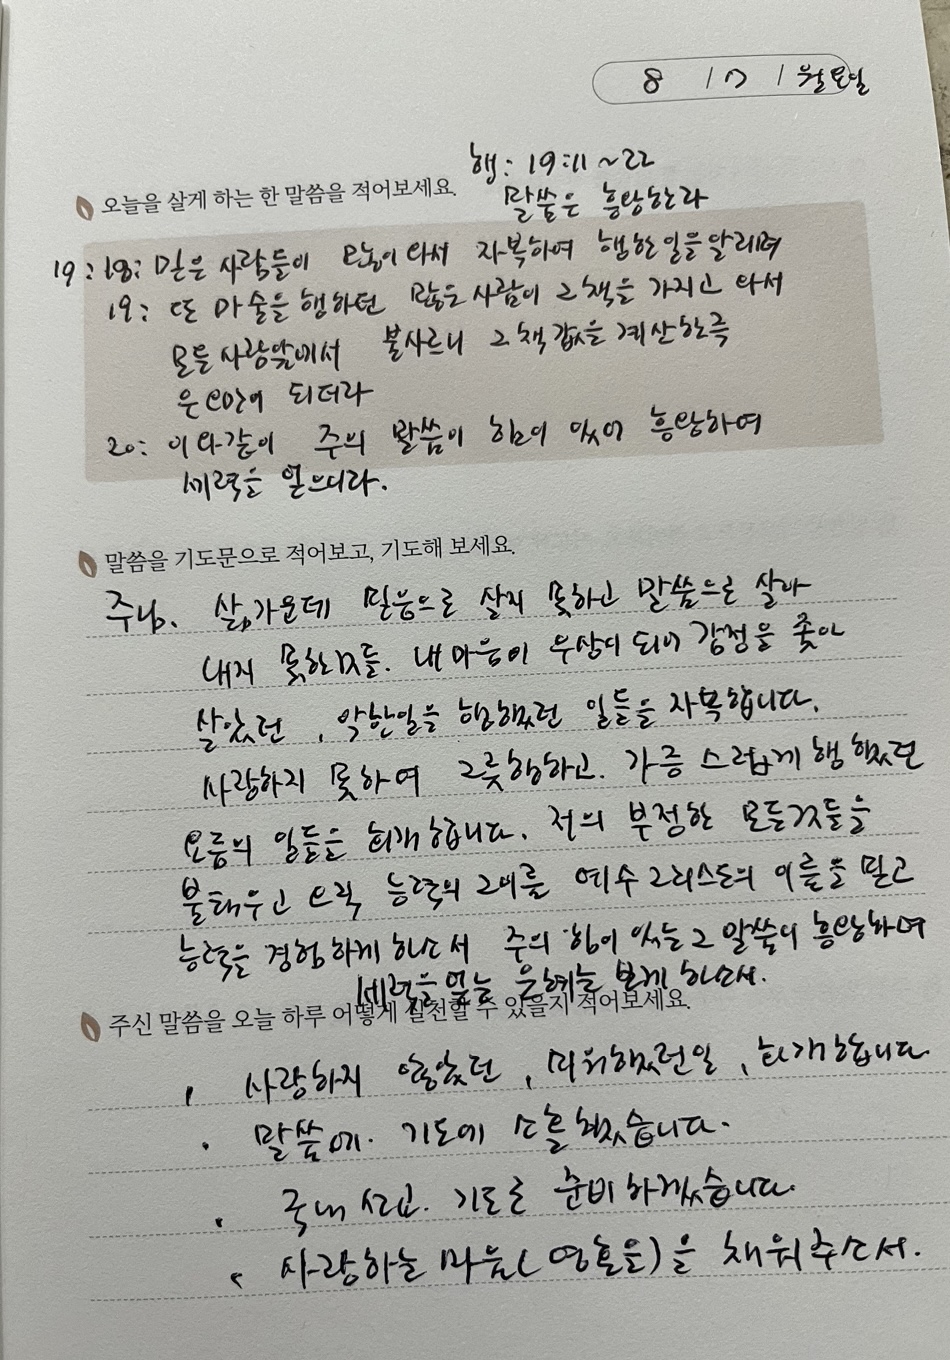 8 / 7 / 월요일
행: 19:11~22
오늘을 살게 하는 한 말씀을 적어보세요.
말씀은 흥왕한라
19:18: 믿은 사람들이 많이 와서 자복하여 행한 일을 알리며
19: 또 마술을 행하던 많은 사람이 그 책을 가지고 와서
모든 사람앞에서 불사르니 그 책값을 계산한즉
은 되더라
20: 이와같이 주의 말씀이 힘이 있어 흥왕하여
세력을 얻으니라.
말씀을 기도문으로 적어보고, 기도해 보세요.
주님. 삶가운데 믿음으로 살지 못하고 말씀으로 살아
내지 못한것들. 내 마음이 우상이 되어 감정을 좇아
살았던, 악한일을 행했던 일들을 자복합니다.
사랑하지 못하여 그릇행하고. 가증 스럽게 행했던
모름의 일들을 회개합니다. 전의 부정한 모든것들을
불태우고 오직 능력의 그이름 예수 그리스도의 이름을 믿고
능력을 경험하게 하소서 주의 힘이 있는 그 말씀이 흥왕하여
세력을 얻는 은혜를 보게 하소서.
주신 말씀을 오늘 하루 어떻게 실천할 수 있을지 적어보세요.
, 사랑하지 않았던, 미워했던일, 회개합니다
· 말씀에. 기도에 소홀했습니다.
· 국내 선교. 기도로 준비하겠습니다.
· 사랑하는 마음(영혼을)을 채워주소서.